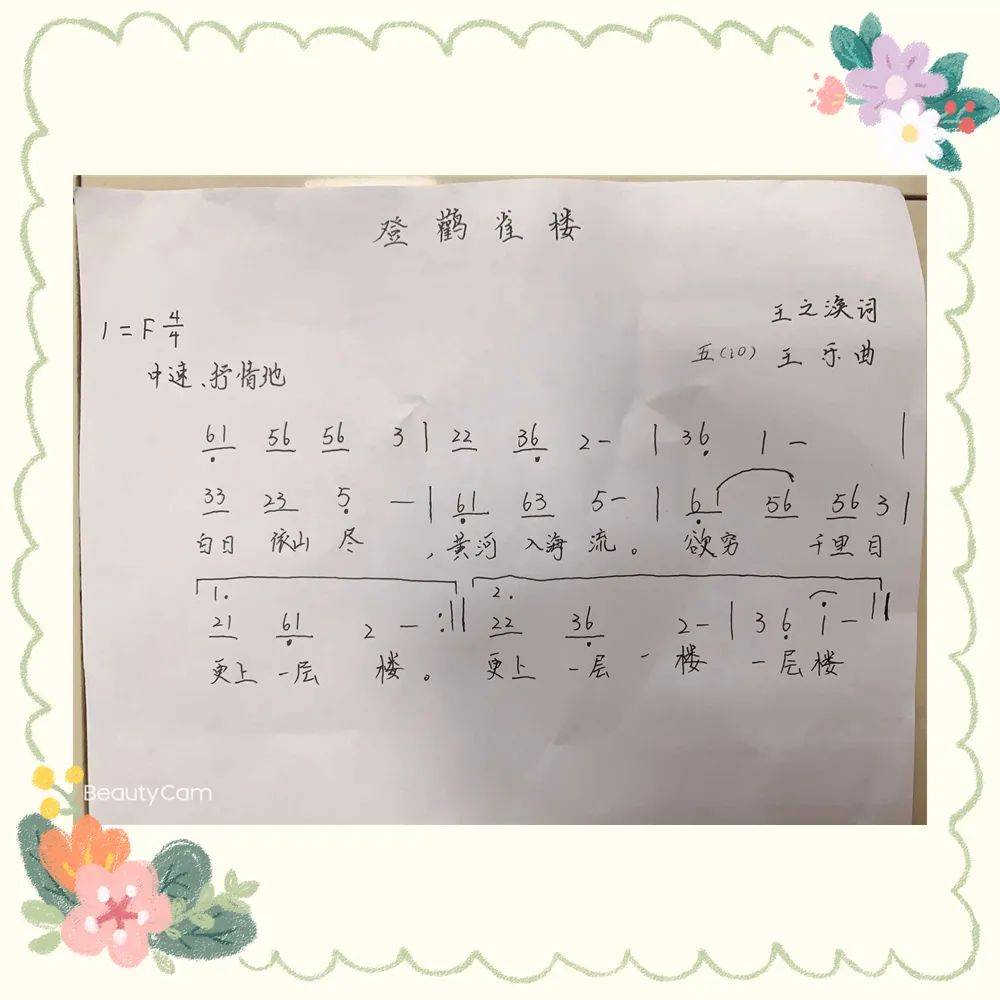 登鹳雀楼
王之涣词
1=F 4/4
五(10) 王乐曲
中速、抒情地
61 56 56 3 | 22 36 2 - | 36 1 - |
33 23 5 - | 61 63 5 - | 61 56 56 3 |
白日 依山 尽 , 黄河 入海 流。 欲穷 千里目
1. 2.
21 61 2 - :|| 22 36 2 - | 3 6 i - ||
更上 一层 楼。 更上 一层 - 楼 一层楼
BeautyCam